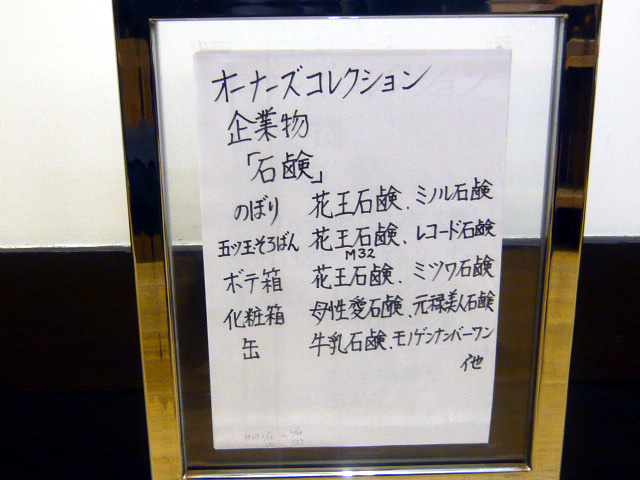 オーナーズコレクション
企業物
「石鹸」
のぼり 花王石鹸、ミノル石鹸
五ツ玉そろばん 花王石鹸、レコード石鹸
M32
ボテ箱 花王石鹸、ミツワ石鹸
化粧箱 母性愛石鹸、元禄美人石鹸
缶 牛乳石鹸、モノゲンナンバーワン
他